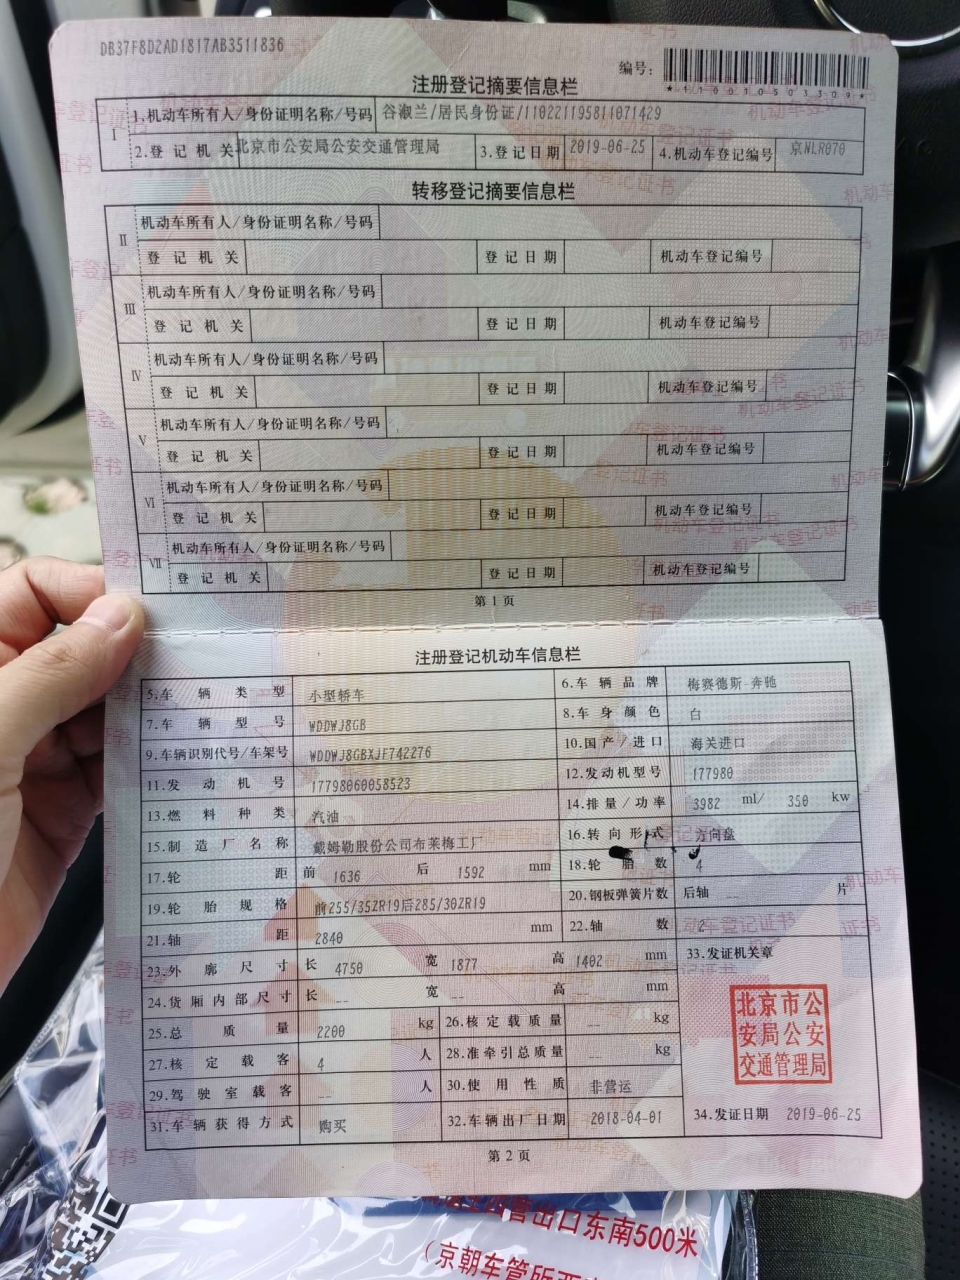 DB37F8D2AD1817AB3511836
编号:
*110010503309*
注册登记摘要信息栏
Ⅰ 1.机动车所有人/身份证明名称/号码 谷淑兰/居民身份证/110221195811071429
2.登记机关 北京市公安局公安交通管理局 3.登记日期 2019-06-25 4.机动车登记编号 京NLR070
转移登记摘要信息栏
Ⅱ 机动车所有人/身份证明名称/号码
登记机关 登记日期 机动车登记编号
Ⅲ 机动车所有人/身份证明名称/号码
登记机关 登记日期 机动车登记编号
Ⅳ 机动车所有人/身份证明名称/号码
登记机关 登记日期 机动车登记编号
Ⅴ 机动车所有人/身份证明名称/号码
登记机关 登记日期 机动车登记编号
Ⅵ 机动车所有人/身份证明名称/号码
登记机关 登记日期 机动车登记编号
Ⅶ 机动车所有人/身份证明名称/号码
登记机关 登记日期 机动车登记编号
第1页
注册登记机动车信息栏
5.车辆类型 小型轿车 6.车辆品牌 梅赛德斯-奔驰
7.车辆型号 WDDWJ8GB 8.车身颜色 白
9.车辆识别代号/车架号 WDDWJ8GBXJF742276 10.国产/进口 海关进口
11.发动机号 17798060058523 12.发动机型号 177980
13.燃料种类 汽油 14.排量/功率 3982 ml/ 350 kw
15.制造厂名称 戴姆勒股份公司布莱梅工厂 16.转向形式 方向盘
17.轮距 前 1636 后 1592 mm 18.轮胎数 4
19.轮胎规格 前255/35ZR19后285/30ZR19 20.钢板弹簧片数 后轴 -- 片
21.轴距 2840 mm 22.轴数 2
23.外廓尺寸 长 4750 宽 1877 高 1402 mm 33.发证机关章
24.货厢内部尺寸 长 -- 宽 -- 高 -- mm
25.总质量 2200 kg 26.核定载质量 -- kg
27.核定载客 4 人 28.准牵引总质量 -- kg
29.驾驶室载客 -- 人 30.使用性质 非营运
31.车辆获得方式 购买 32.车辆出厂日期 2018-04-01 34.发证日期 2019-06-25
北京市公
安局公安
交通管理局
第2页
营出口东南500米
(京朝车管所西